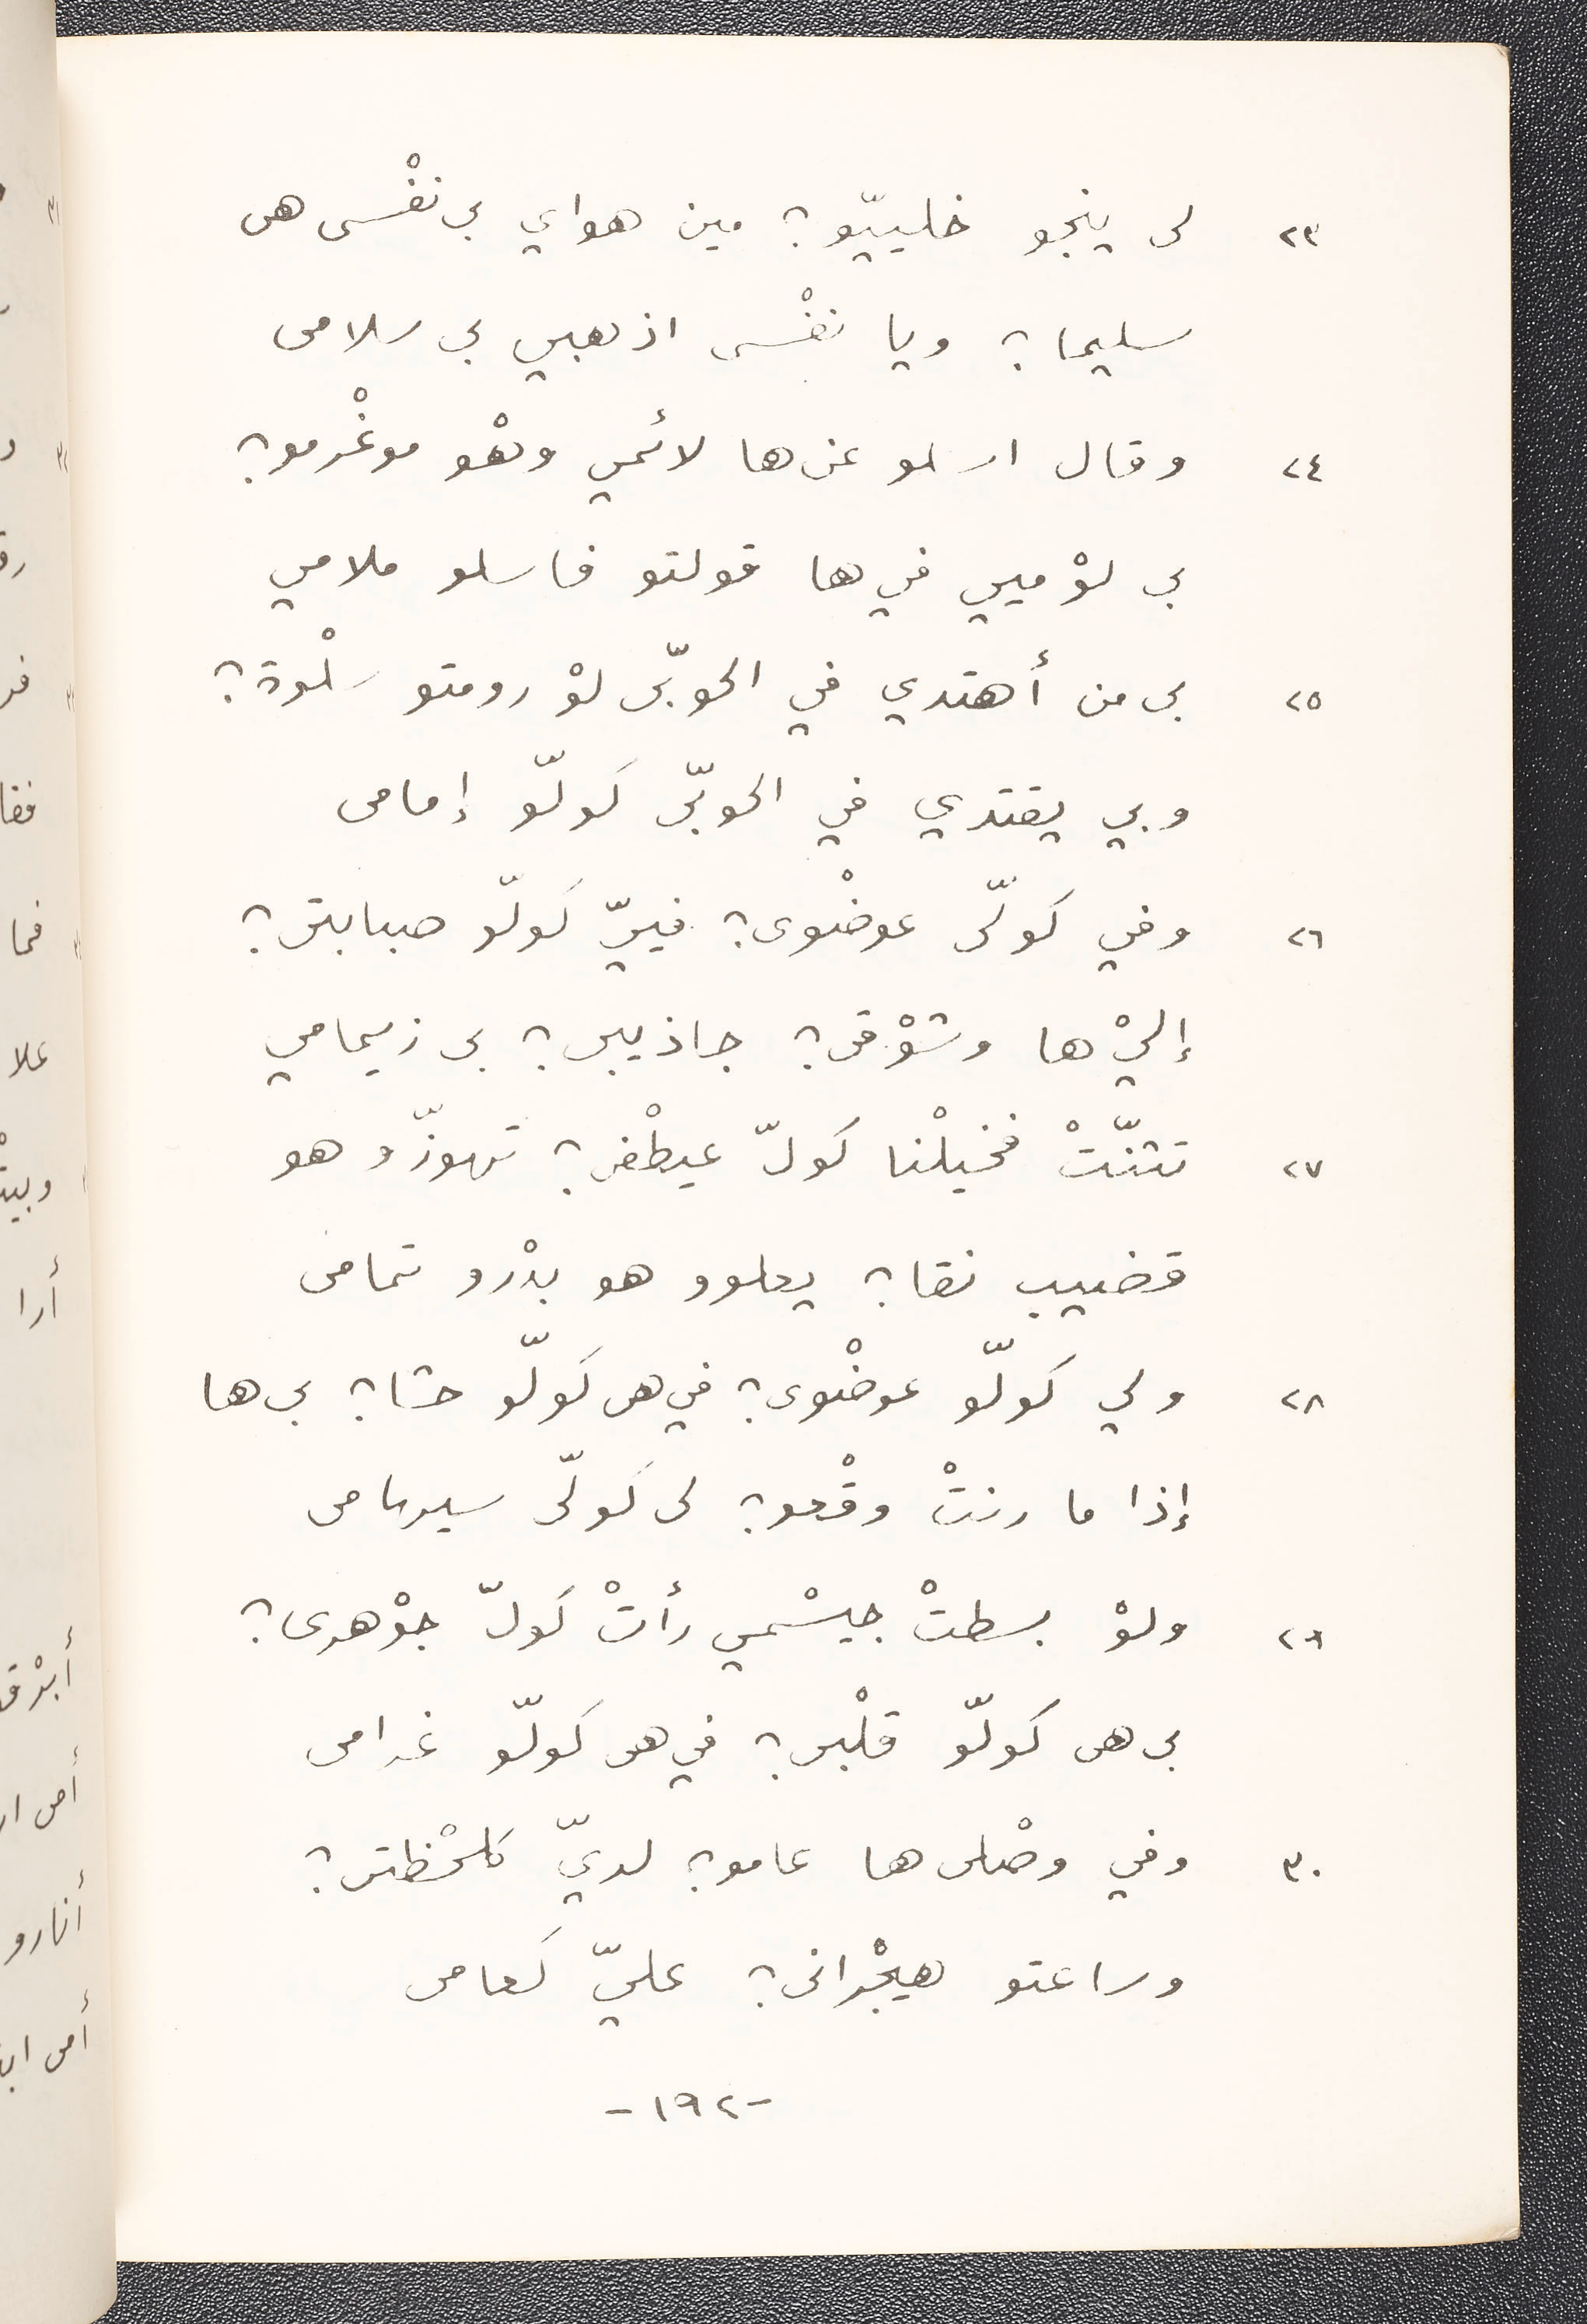 ٢٣ لى ينجو خلييّو؟ مين هواي بى نفْسى هى
سليما؟ ويا نفْسى اذهبي بى سلامى
٢٤ وقال اسلو عن ها لائمي وهْو موغْرمو؟
بى لوْميي في ها قولتو فاسلو ملامي
٢٥ بى من أهتدي في الحوبّى لوْ رومتو سلْوة؟
وبي يقتدي في الحوبّى كولّو إمامى
٢٦ وفي كولّى عوضْوى؟ فييّ كولّو صبابتى؟
إليْ ها وشوْقى؟ جاذيبى؟ بى زيمامي
٢٧ تثنّتْ فخيلْنا كولّ عيطْفى؟ تهوزّو هو
قضيب نقا؟ يعلوو هو بدْرو تمامى
٢٨ ولي كولّو عوضْوى؟ في هى كولّو حشا؟ بى ها
إذا ما رنتْ وقْعو؟ لى كولّى سيهامى
٢٩ ولوْ بسطتْ جيسْمي رأتْ كولّ جوْهرى؟
بى هى كولّو قلْبى؟ في هى كولّو غرامى
٣٠ وفي وصْلى ها عامو؟ لديّ كلحْظتى؟
وساعتو هيجْرانى؟ عليّ كعامى
-١٩٢-